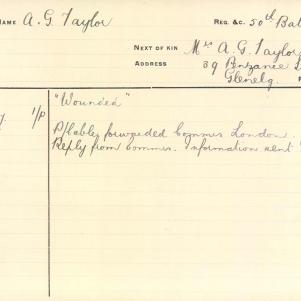 NAME A. G. Taylor
REG. &C. 50th Bat
NEXT OF KIN Mrs A. G. Taylor
ADDRESS 39 Penzance S
Glenelg.
"Wounded"
1/P P/Cabled forwarded Commrs London.
Reply from Commrs. Information sent